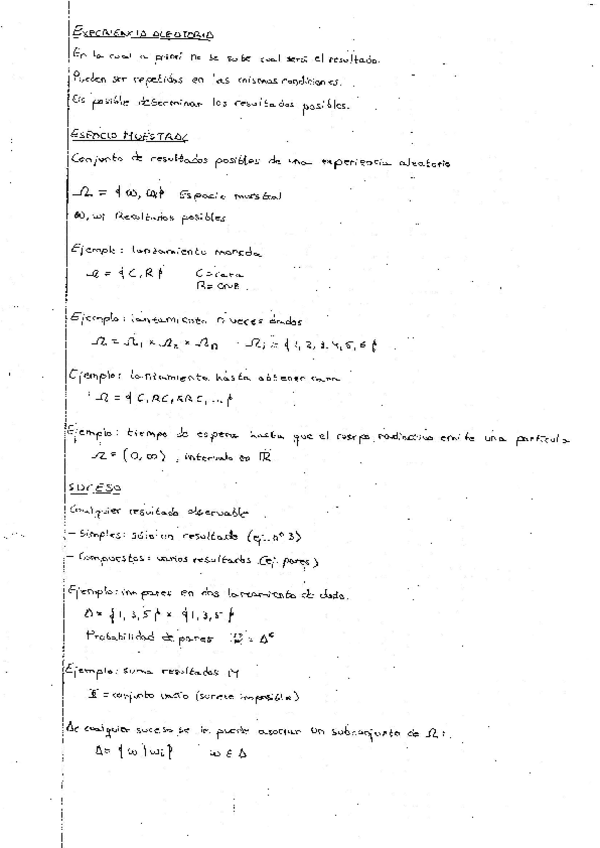 EXPERIENCIA ALEATORIA
En la cual a priori no se sabe cual será el resultado.
Pueden ser repetidas en las mismas condiciones.
Es posible determinar los resultados posibles.
ESPACIO MUESTRAL
Conjunto de resultados posibles de una experiencia aleatoria
Ω = {ω, ωi} Espacio muestral
ω, ωi Resultados posibles
Ejemplo: lanzamiento moneda
Ω = {C, R} C = cara
R = cruz
Ejemplo: lanzamiento n veces dados
Ω = Ω1 × Ω2 × Ωn Ωi = {1, 2, 3, 4, 5, 6}
Ejemplo: lanzamiento hasta obtener cara
Ω = {C, RC, RRC, ...}
Ejemplo: tiempo de espera hasta que el cuerpo radiactivo emite una partícula
Ω = (0, ∞), intervalo en ℝ
SUCESO
Cualquier resultado observable
- Simples: sólo un resultado (ej. nº 3)
- Compuestos: varios resultados (ej. pares)
Ejemplo: impares en dos lanzamiento de dado.
A = {1, 3, 5} × {1, 3, 5}
Probabilidad de pares = Aᶜ
Ejemplo: suma resultados
= conjunto vacío (suceso imposible)
A cualquier suceso se le puede asociar un subconjunto de Ω:
A = {ω | ωi} ω ∈ A